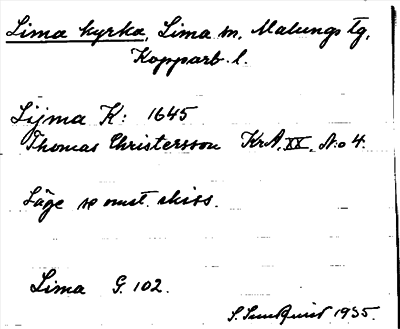 Lima kyrka, Lima sn, Malungs tg,
Kopparb. l.
Lijma K: 1645
Thomas Christersson Kr.A. XX, No 4.
Läge se omst. skiss.
Lima G. 102.
S. 1935.